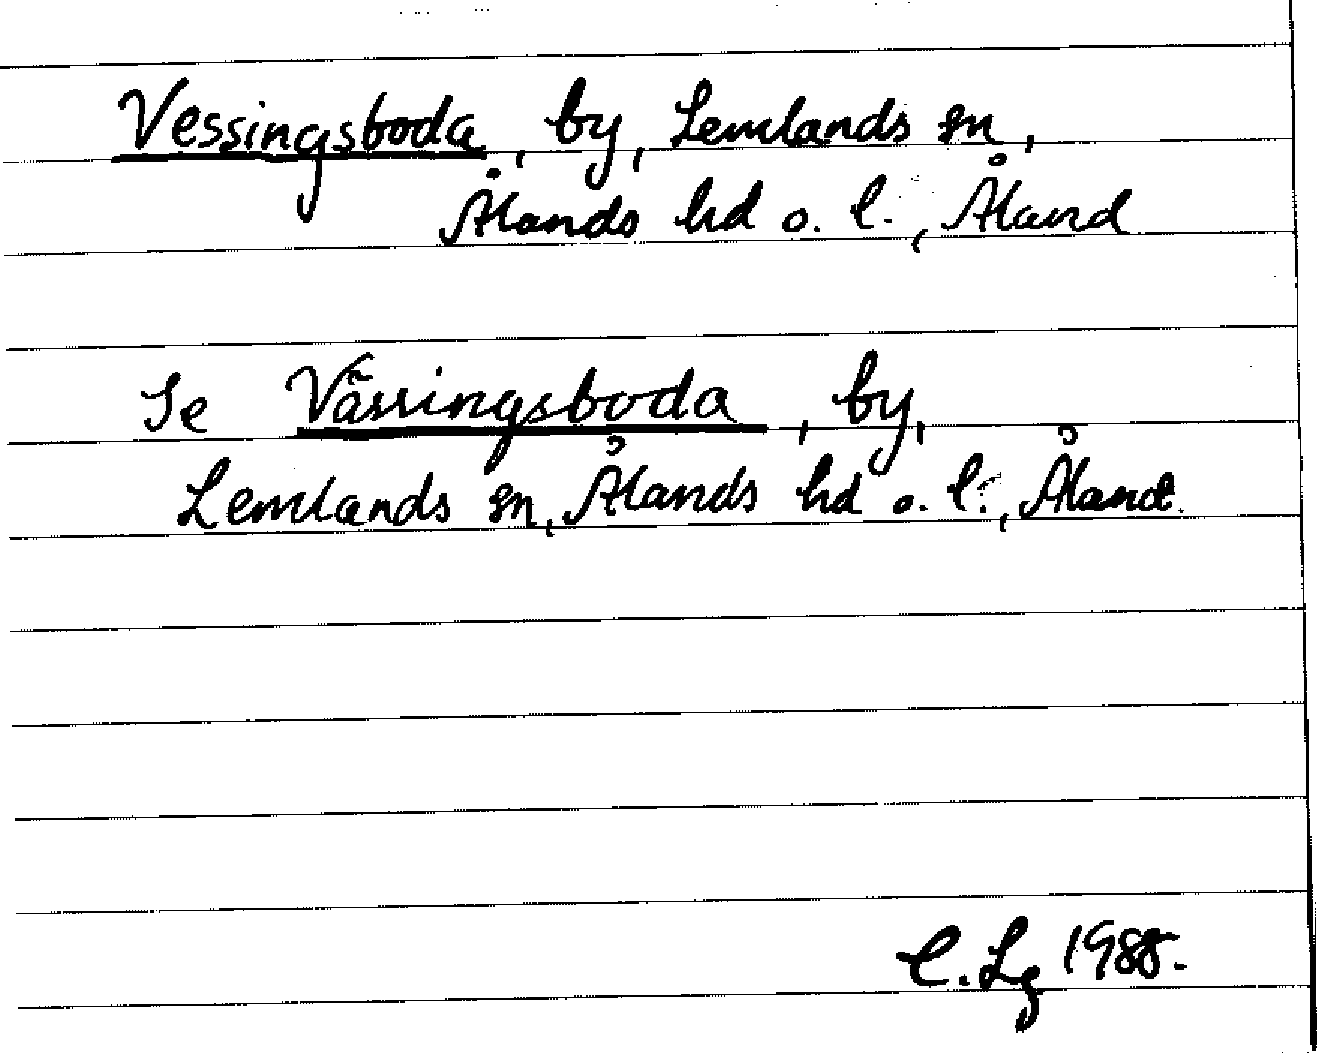 Vessingsboda, by, Lemlands sn,
Ålands hd o. l., Åland
Se Vässingsboda, by,
Lemlands sn, Ålands hd o. l., Åland.
C. Lg 1988.